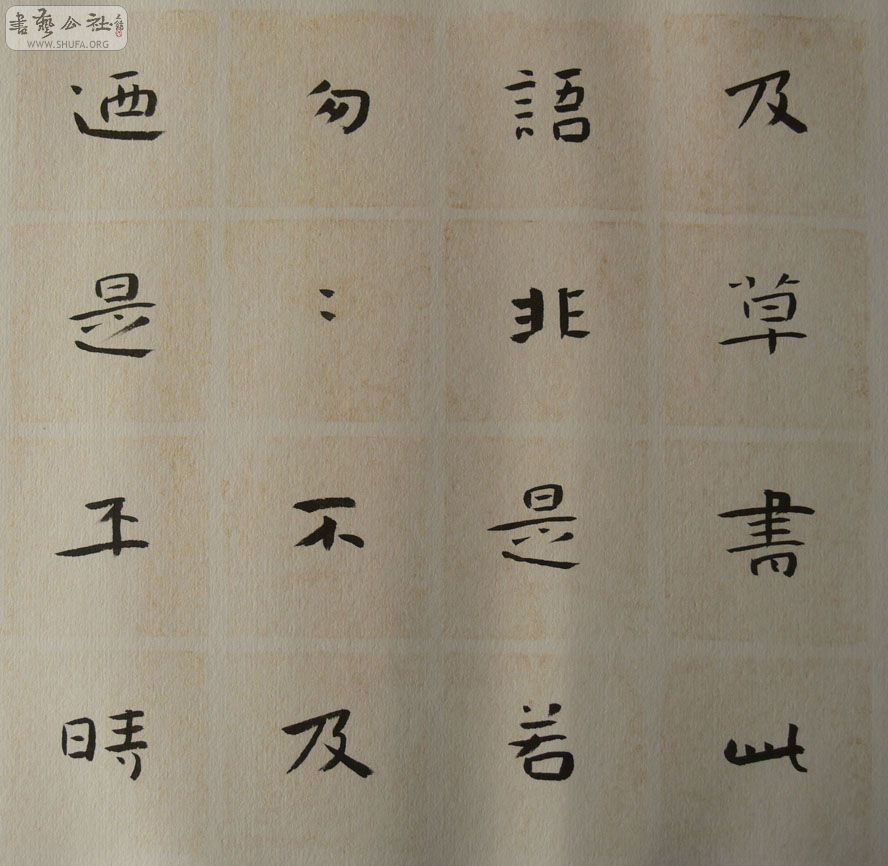 書藝公社
WWW.SHUFA.ORG
及草書此
語非是若
匆〻不及
迺是平時